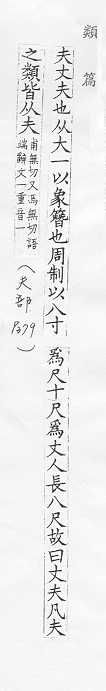 類篇
夫丈夫也从大一以象簪也周制以八寸爲尺十尺爲丈人長八尺故曰丈夫凡夫
之類皆从夫甫無切又馮無切語
端辭文一重音一
(夫部 P379)